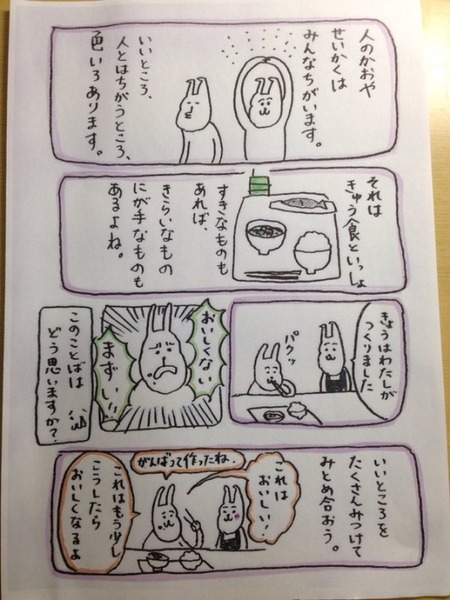 人のかおや
せいかくは
みんなちがいます。
いいところ、
人とはちがうところ、
色いろあります。
それは
きゅう食といっしょ
すきなものも
あれば、
きらいなもの
にが手なものも
あるよね。
きょうはわたしが
つくりました
パクッ
おいしくない
まずい!!
このことばは
どう思いますか?
いいところを
たくさんみつけて
みとめ合おう。
これは
おいしい!
がんばって作ったね。
これはもう少し
こうしたら
おいしくなるよ